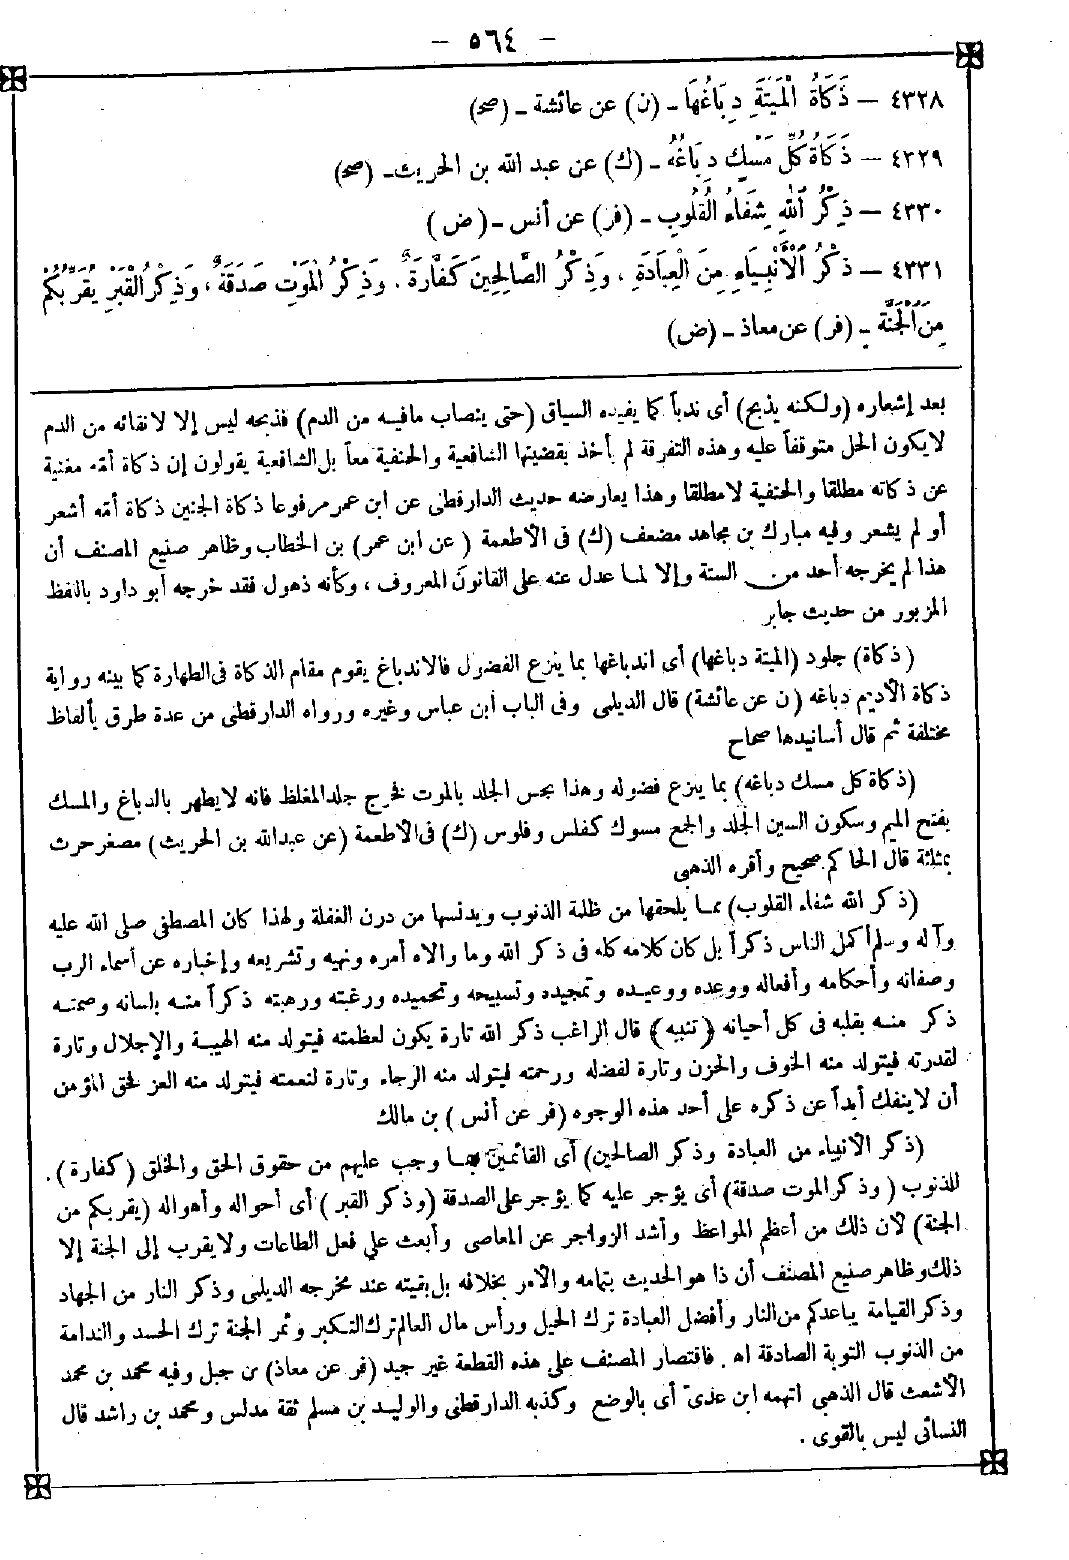 — ٥٦٤ —
٤٣٢٨ — ذَكَاةُ الْمَيْتَةِ دِبَاغُهَا ـ (ن) عن عائشة ـ (صح)
٤٣٢٩ — ذَكَاةُ كُلِّ مَسْكٍ دِبَاغُهُ ـ (ك) عن عبد الله بن الحريث ـ (صح)
٤٣٣٠ — ذِكْرُ اللهِ شِفَاءُ الْقُلُوبِ ـ (فر) عن أنس ـ (ض)
٤٣٣١ — ذِكْرُ الْأَنْبِيَاءِ مِنَ الْعِبَادَةِ ، وَذِكْرُ الصَّالِحِينَ كَفَّارَةٌ . وَذِكْرُ الْمَوْتِ صَدَقَةٌ ، وَذِكْرُ الْقَبْرِ يُقَرِّبُكُمْ
مِنَ الْجَنَّةِ ـ (فر) عن معاذ ـ (ض)
بعد إشعاره (ولكنه يذبح) أى ندباً كما يفيده السياق (حتى ينصاب مافيه من الدم) فذبحه ليس إلا لانقائه من الدم
لايكون الحل متوقفاً عليه وهذه التفرقة لم يأخذ بقضيتها الشافعية والحنفية معاً بل الشافعية يقولون إن ذكاة أمّه مغنية
عن ذكاته مطلقا والحنفية لامطلقا وهذا يعارضه حديث الدارقطى عن ابن عمر مرفوعا ذكاة الجنين ذكاة أمّه أشعر
أو لم يشعر وفيه مبارك بن مجاهد مضعف (ك) فى الأطعمة (عن ابن عمر) بن الخطاب وظاهر صنيع المصنف أن
هذا لم يخرجه أحد من الستة وإلا لما عدل عنه على القانون المعروف ، وكأنه ذهول فقد خرجه أبو داود باللفظ
المزبور من حديث جابر
(ذكاة) جلود (الميتة دباغها) أى اندباغها بما ينزع الفضول فالاندباغ يقوم مقام الذكاة فى الطهارة كما بينه رواية
ذكاة الأديم دباغه (ن عن عائشة) قال الديلمى وفى الباب ابن عباس وغيره ورواه الدارقطنى من عدة طرق بألفاظ
مختلفة ثم قال أسانيدها صحاح
(ذكاة كل مسك دباغه) بما ينزع فضوله وهذا نجس الجلد بالموت فخرج جلد المغلظ فانه لايطهر بالدباغ والمسك
بفتح الميم وسكون السين الجلد والجمع مسوك كفلس وفلوس (ك) فى الأطعمة (عن عبدالله بن الحريث) مصغر حرث
بمثلثة قال الحاكم صحيح وأقره الذهبى
(ذكر الله شفاء القلوب) مما يلحقها من ظلمة الذنوب ويدنسها من درن الغفلة ولهذا كان المصطفى صلى الله عليه
وآله وسلم أكمل الناس ذكراً بل كان كلامه كله فى ذكر الله وما والاه أمره ونهيه وتشريعه وإخباره عن أسماء الرب
وصفاته وأحكامه وأفعاله ووعده ووعيده وتمجيده وتسبيحه وتحميده ورغبته ورهبته ذكراً منه بلسانه وصمته
ذكر منه بقلبه فى كل أحيانه (تنبيه) قال الراغب ذكر الله تارة يكون لعظمته فيتولد منه الهيبة والإجلال وتارة
لقدرته فيتولد منه الخوف والحزن وتارة لفضله ورحمته فيتولد منه الرجاء وتارة لنعمته فيتولد منه العز فحق المؤمن
أن لاينفك أبداً عن ذكره على أحد هذه الوجوه (فر عن أنس) بن مالك
(ذكر الأنبياء من العبادة وذكر الصالحين) أى القائمين بما وجب عليهم من حقوق الحق والخلق (كفارة) .
للذنوب (وذكر الموت صدقة) أى يؤجر عليه كما يؤجر على الصدقة (وذكر القبر) أى أحواله وأهواله (يقربكم من
الجنة) لأن ذلك من أعظم المواعظ وأشد الزواجر عن المعاصى وأبعث على فعل الطاعات ولايقرب إلى الجنة إلا
ذلك وظاهر صنيع المصنف أن ذا هو الحديث بتمامه والأمر بخلافه بل بقيته عند مخرجه الديلمى وذكر النار من الجهاد
وذكر القيامة يباعدكم من النار وأفضل العبادة ترك الحيل ورأس مال العالم ترك التكبر وثمر الجنة ترك الحسد والندامة
من الذنوب التوبة الصادقة اه . فاقتصار المصنف على هذه القطعة غير جيد (فر عن معاذ) بن جبل وفيه محمد بن محمد
الأشعث قال الذهبى اتهمه ابن عدىّ أى بالوضع وكذبه الدارقطنى والوليد بن مسلم ثقة مدلس ومحمد بن راشد قال
النسائى ليس بالقوى .